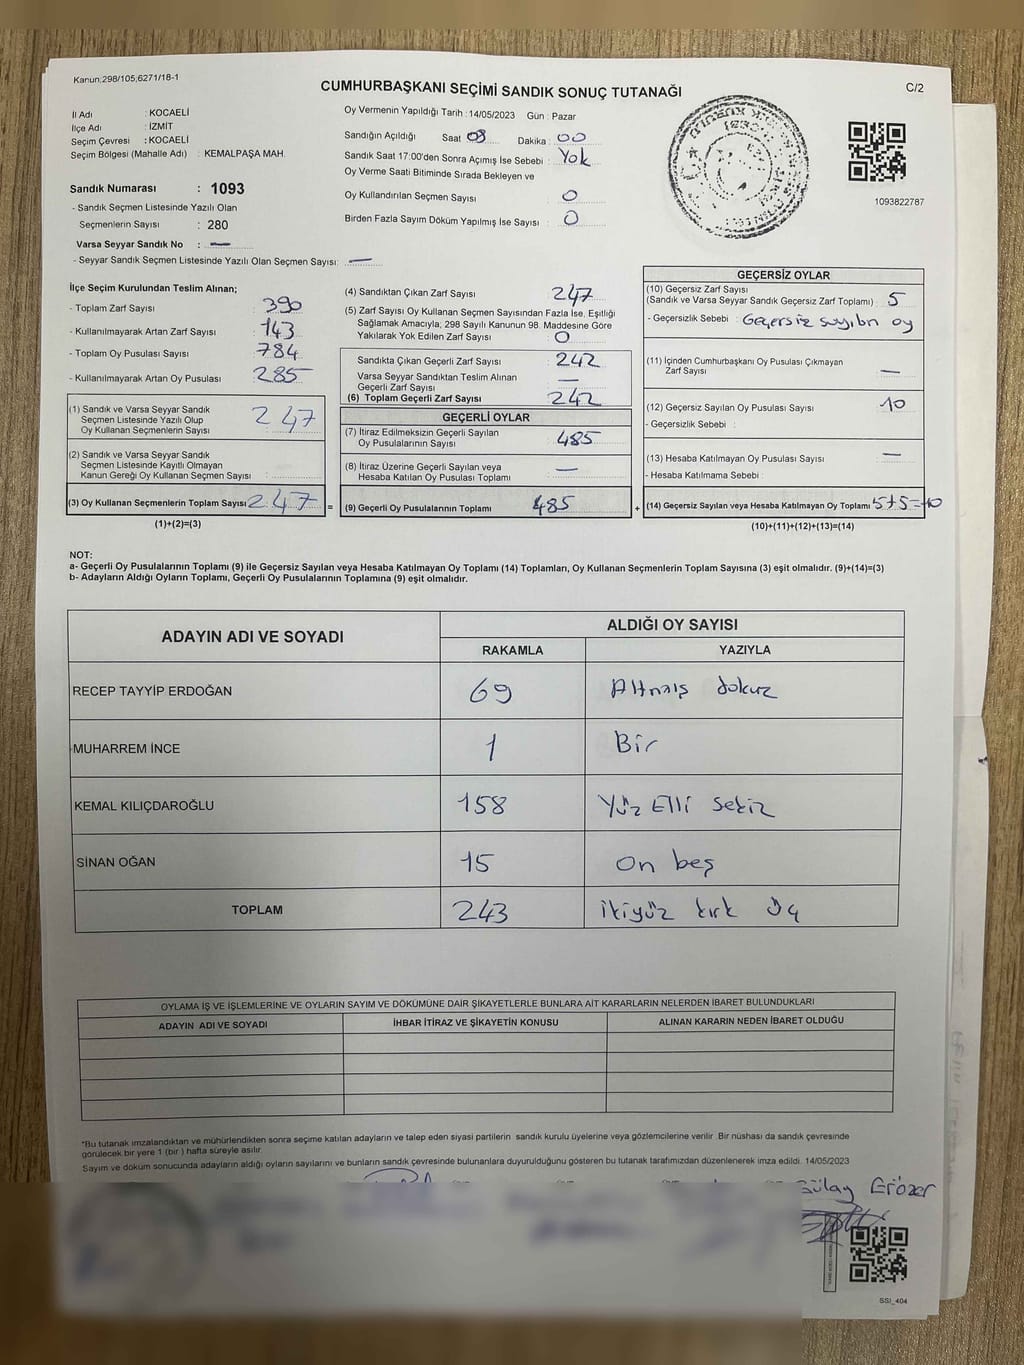 Kanun;298/105;6271/18-1
CUMHURBAŞKANI SEÇİMİ SANDIK SONUÇ TUTANAĞI
C/2
İl Adı : KOCAELİ
İlçe Adı : İZMİT
Seçim Çevresi : KOCAELİ
Seçim Bölgesi (Mahalle Adı) : KEMALPAŞA MAH.
Sandık Numarası : 1093
- Sandık Seçmen Listesinde Yazılı Olan
Seçmenlerin Sayısı : 280
Varsa Seyyar Sandık No : —
- Seyyar Sandık Seçmen Listesinde Yazılı Olan Seçmen Sayısı: —
Oy Vermenin Yapıldığı Tarih :14/05/2023 Gün : Pazar
Sandığın Açıldığı Saat 08 Dakika : 00
Sandık Saat 17:00'den Sonra Açımış İse Sebebi : Yok
Oy Verme Saati Bitiminde Sırada Bekleyen ve
Oy Kullandırılan Seçmen Sayısı : 0
Birden Fazla Sayım Döküm Yapılmış İse Sayısı : 0
1093822787
İlçe Seçim Kurulundan Teslim Alınan;
- Toplam Zarf Sayısı : 390
- Kullanılmayarak Artan Zarf Sayısı : 143
- Toplam Oy Pusulası Sayısı : 784
- Kullanılmayarak Artan Oy Pusulası : 285
(1) Sandık ve Varsa Seyyar Sandık
Seçmen Listesinde Yazılı Olup
Oy Kullanan Seçmenlerin Sayısı : 247
(2) Sandık ve Varsa Seyyar Sandık
Seçmen Listesinde Kayıtlı Olmayan
Kanun Gereği Oy Kullanan Seçmen Sayısı :
(3) Oy Kullanan Seçmenlerin Toplam Sayısı: 247
(1)+(2)=(3)
=
(4) Sandıktan Çıkan Zarf Sayısı : 247
(5) Zarf Sayısı Oy Kullanan Seçmen Sayısından Fazla İse, Eşitliği
Sağlamak Amacıyla; 298 Sayılı Kanunun 98. Maddesine Göre
Yakılarak Yok Edilen Zarf Sayısı : 0
Sandıkta Çıkan Geçerli Zarf Sayısı : 242
Varsa Seyyar Sandıktan Teslim Alınan
Geçerli Zarf Sayısı : —
(6) Toplam Geçerli Zarf Sayısı : 242
GEÇERLİ OYLAR
(7) İtiraz Edilmeksizin Geçerli Sayılan
Oy Pusulalarının Sayısı : 485
(8) İtiraz Üzerine Geçerli Sayılan veya
Hesaba Katılan Oy Pusulası Toplamı : —
(9) Geçerli Oy Pusulalarının Toplamı : 485
+
GEÇERSİZ OYLAR
(10) Geçersiz Zarf Sayısı
(Sandık ve Varsa Seyyar Sandık Geçersiz Zarf Toplamı) : 5
- Geçersizlik Sebebi : Geçersiz sayılan oy
(11) İçinden Cumhurbaşkanı Oy Pusulası Çıkmayan
Zarf Sayısı : —
(12) Geçersiz Sayılan Oy Pusulası Sayısı : 10
- Geçersizlik Sebebi :
(13) Hesaba Katılmayan Oy Pusulası Sayısı : —
- Hesaba Katılmama Sebebi :
(14) Geçersiz Sayılan veya Hesaba Katılmayan Oy Toplamı : 5+5=10
(10)+(11)+(12)+(13)=(14)
NOT:
a- Geçerli Oy Pusulalarının Toplamı (9) ile Geçersiz Sayılan veya Hesaba Katılmayan Oy Toplamı (14) Toplamları, Oy Kullanan Seçmenlerin Toplam Sayısına (3) eşit olmalıdır. (9)+(14)=(3)
b- Adayların Aldığı Oyların Toplamı, Geçerli Oy Pusulalarının Toplamına (9) eşit olmalıdır.
ADAYIN ADI VE SOYADI ALDIĞI OY SAYISI
RAKAMLA YAZIYLA
RECEP TAYYİP ERDOĞAN 69 Altmış dokuz
MUHARREM İNCE 1 Bir
KEMAL KILIÇDAROĞLU 158 Yüz Elli sekiz
SİNAN OĞAN 15 On beş
TOPLAM 243 ikiyüz kırk üç
OYLAMA İŞ VE İŞLEMLERİNE VE OYLARIN SAYIM VE DÖKÜMÜNE DAİR ŞİKAYETLERLE BUNLARA AİT KARARLARIN NELERDEN İBARET BULUNDUKLARI
ADAYIN ADI VE SOYADI İHBAR İTİRAZ VE ŞİKAYETİN KONUSU ALINAN KARARIN NEDEN İBARET OLDUĞU
*Bu tutanak imzalandıktan ve mühürlendikten sonra seçime katılan adayların ve talep eden siyasi partilerin sandık kurulu üyelerine veya gözlemcilerine verilir. Bir nüshası da sandık çevresinde
görülecek bir yere 1 (bir ) hafta süreyle asılır.
Sayım ve döküm sonucunda adayların aldığı oyların sayılarını ve bunların sandık çevresinde bulunanlara duyurulduğunu gösteren bu tutanak tarafımızdan düzenlenerek imza edildi. 14/05/2023
Gülay Erözer
SSI_404